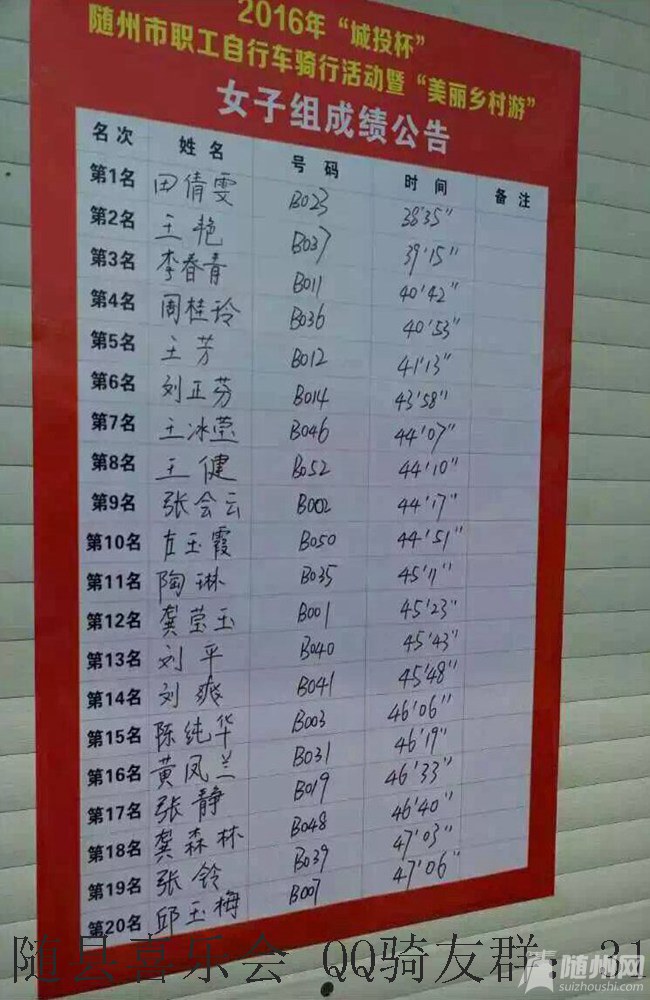 2016年“城投杯”
随州市职工自行车骑行活动暨“美丽乡村游”
女子组成绩公告
名次 姓名 号码 时间 备注
第1名 田倩雯 B023 38'35"
第2名 王艳 B037 39'15"
第3名 李春青 B011 40'42"
第4名 周桂玲 B036 40'53"
第5名 王芳 B012 41'13"
第6名 刘正芬 B014 43'58"
第7名 王冰莹 B046 44'07"
第8名 王健 B052 44'10"
第9名 张会云 B002 44'17"
第10名 左玉霞 B050 44'51"
第11名 陶琳 B035 45'11"
第12名 龚莹玉 B001 45'23"
第13名 刘平 B040 45'43"
第14名 刘爽 B041 45'48"
第15名 陈纯华 B003 46'06"
第16名 黄凤兰 B031 46'19"
第17名 张静 B019 46'33"
第18名 龚森林 B048 46'40"
第19名 张铃 B039 47'03"
第20名 邱玉梅 B007 47'06"
随县喜乐会 QQ骑友群: 31
随州网
suizhoushi.com